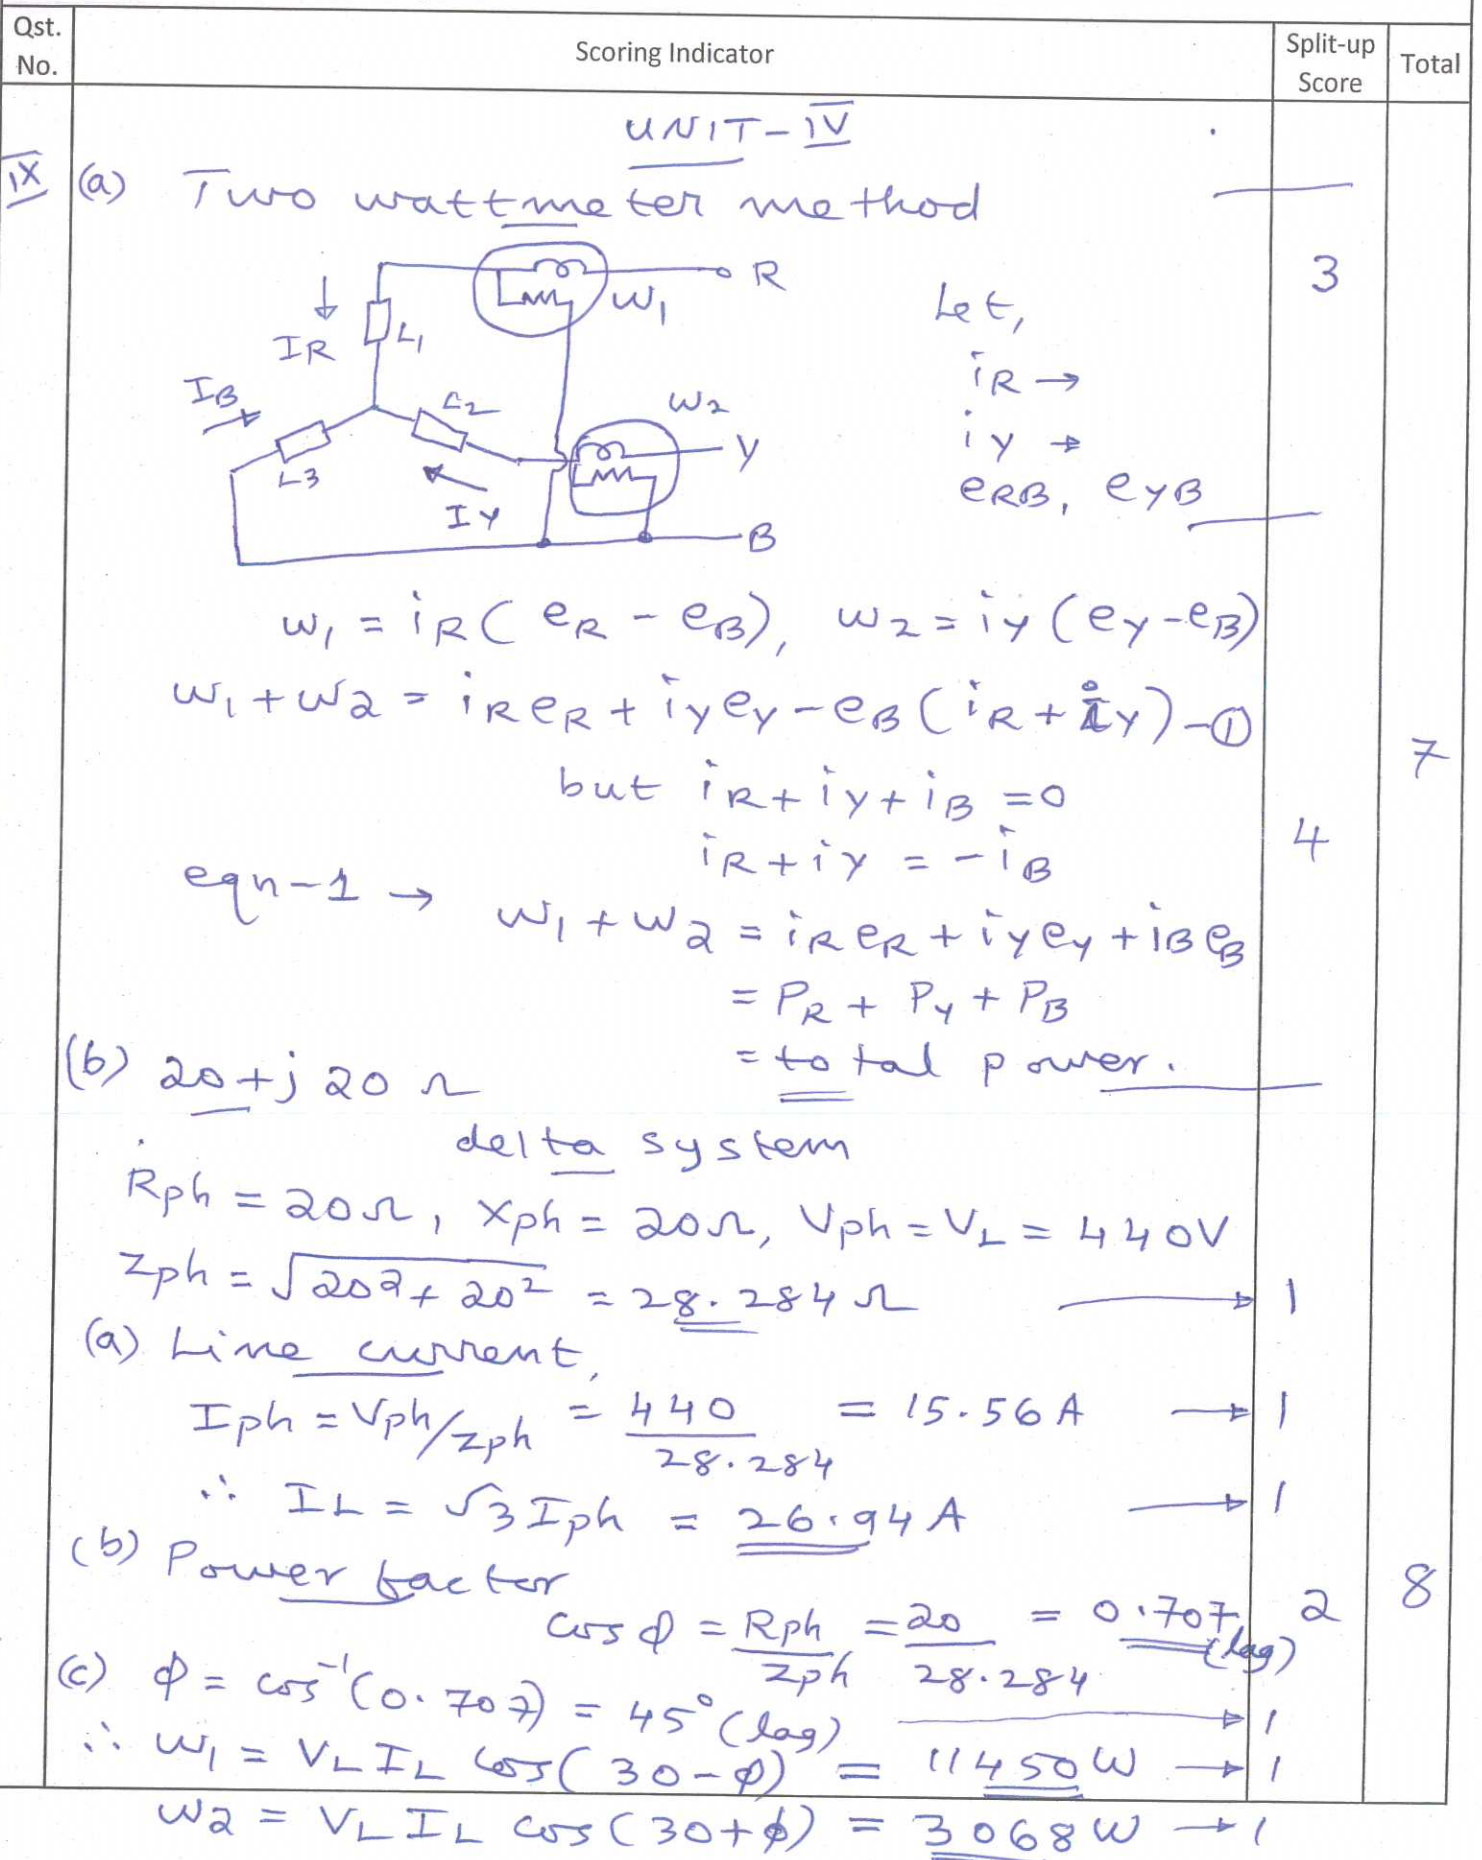 Qst. No. Scoring Indicator Split-up Score Total
UNIT-IV
IX (a) Two wattmeter method
3
R
W1
Let,
IR L1
iR →
IB L2 W2
iY →
Y
L3
eRB, eYB
IY
B
W1 = iR( eR - eB), W2 = iY (eY-eB)
W1+W2 = iReR + iYeY - eB (iR + iY) -①
7
but iR + iY + iB = 0
4
iR + iY = - iB
eqn-1 → W1 + W2 = iReR + iYeY + iBeB
= PR + PY + PB
= total power.
(b) 20+j 20 Ω
delta system
Rph = 20Ω, Xph = 20Ω, Vph = VL = 440V
Zph = √20²+20² = 28.284 Ω → 1
(a) Line current,
Iph = Vph/Zph = 440/28.284 = 15.56 A → 1
∴ IL = √3 Iph = 26.94 A → 1
(b) Power factor
8
cos ϕ = Rph/Zph = 20/28.284 = 0.707 (lag) 2
(c) ϕ = cos⁻¹(0.707) = 45° (lag) → 1
∴ W1 = VL IL cos(30-ϕ) = 11450 W → 1
W2 = VL IL cos(30+ϕ) = 3068 W → 1